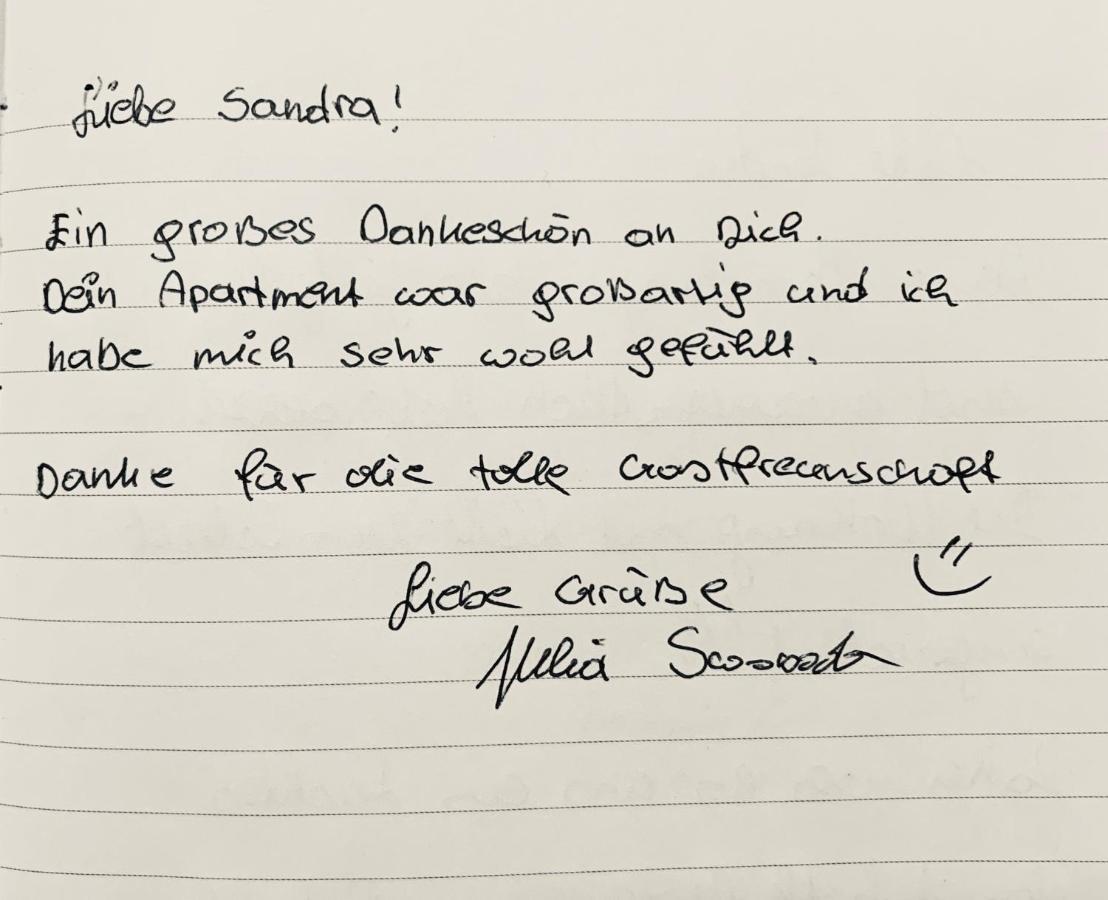 Liebe Sandra!
Ein großes Dankeschön an Dich.
Dein Apartment war großartig und ich
habe mich sehr wohl gefühlt.
Danke für die tolle Gastfreunschaft
Liebe Grüße
Julia